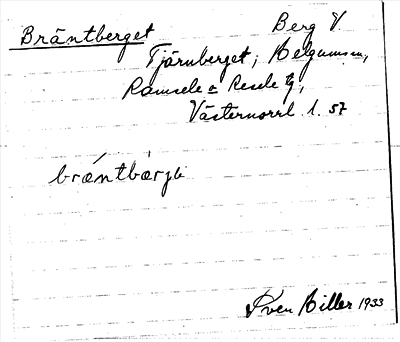 Bräntberget Berg V.
Tjärnberget, Helgumsån,
Ramsele o Resele tg,
Västernorrl. l. 57
bræ´ntbærji
Sven Hiller 1933